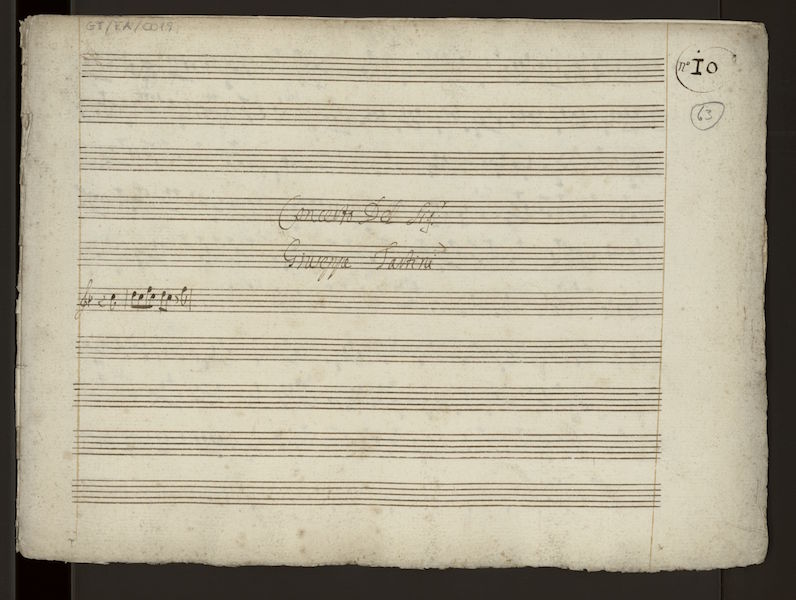 GT/EA/0019
nº 10
63
Concerto Del Sigr
Giuseppe Tartini